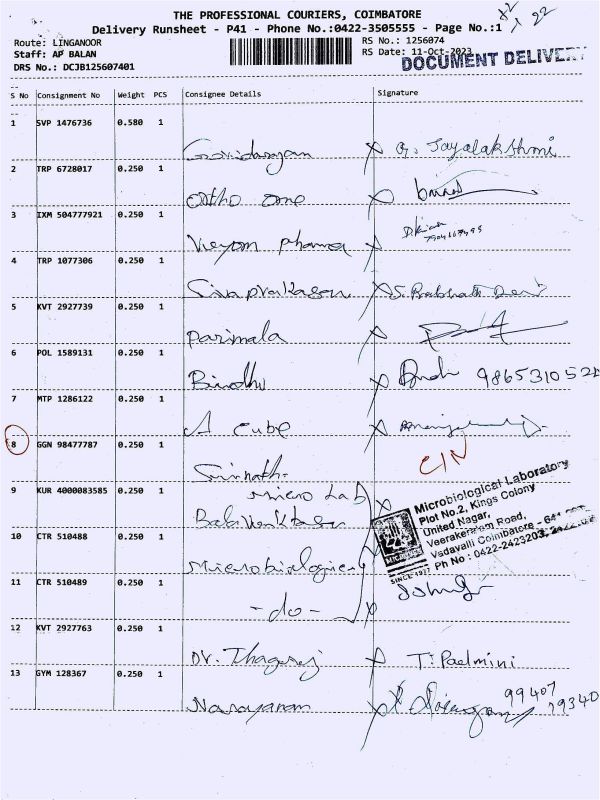 THE PROFESSIONAL COURIERS, COIMBATORE
Delivery Runsheet - P41 - Phone No.:0422-3505555 - Page No.:1
Route: LINGANOOR
Staff: AP BALAN
DRS No.: DCJB125607401
RS No.: 1256074
RS Date: 11-Oct-2023
DOCUMENT DELIVERY
S No Consignment No Weight PCS Consignee Details Signature
1 SVP 1476736 0.580 1
Govindarajan G. Jayalakshmi
2 TRP 6728017 0.250 1
Ortho one
3 IXM 504777921 0.250 1
Viyom pharma
4 TRP 1077306 0.250 1
Sivaprakasam S. Prabhath Devi
5 KVT 2927739 0.250 1
Parimala
6 POL 1589131 0.250 1
Bindhu
7 MTP 1286122 0.250 1
A cube
8 GGN 98477787 0.250 1
CIN
9 KUR 4000083585 0.250 1
micro Lab
10 CTR 510488 0.250 1
11 CTR 510489 0.250 1
-do-
Microbiological Laboratory
Plot No.2, Kings Colony
United Nagar,
Veerakeralam Road,
Vadavalli Coimbatore - 641
Ph No : 0422-2423203,
SINCE 1977
12 KVT 2927763 0.250 1
Dr. Thagaraj T. Padmini
13 GYM 128367 0.250 1
Narayanan 99407